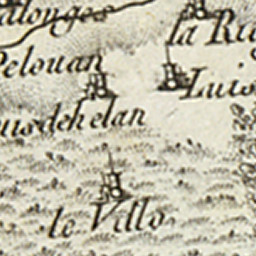 alonges
la Ri
Pelouan
Luis
usdehelan
le Villo